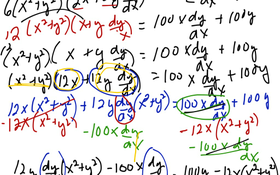 6(x²+y²)
12(x²+y²)(x+y dy/dx) = 100x dy/dx + 100y
12(x²+y²)(x + y dy/dx) = 100x dy/dx + 100y
(x²+y²)(12x + 12y dy/dx) = 100x dy/dx + 100y
12x(x²+y²) + 12y dy/dx (x²+y²) = 100x dy/dx + 100y
-12x(x²+y²) -100x dy/dx -12x(x²+y²)
-100x dy/dx
12y dy (x²+y²) -100x dy = 100y - 12x(x²+y²)